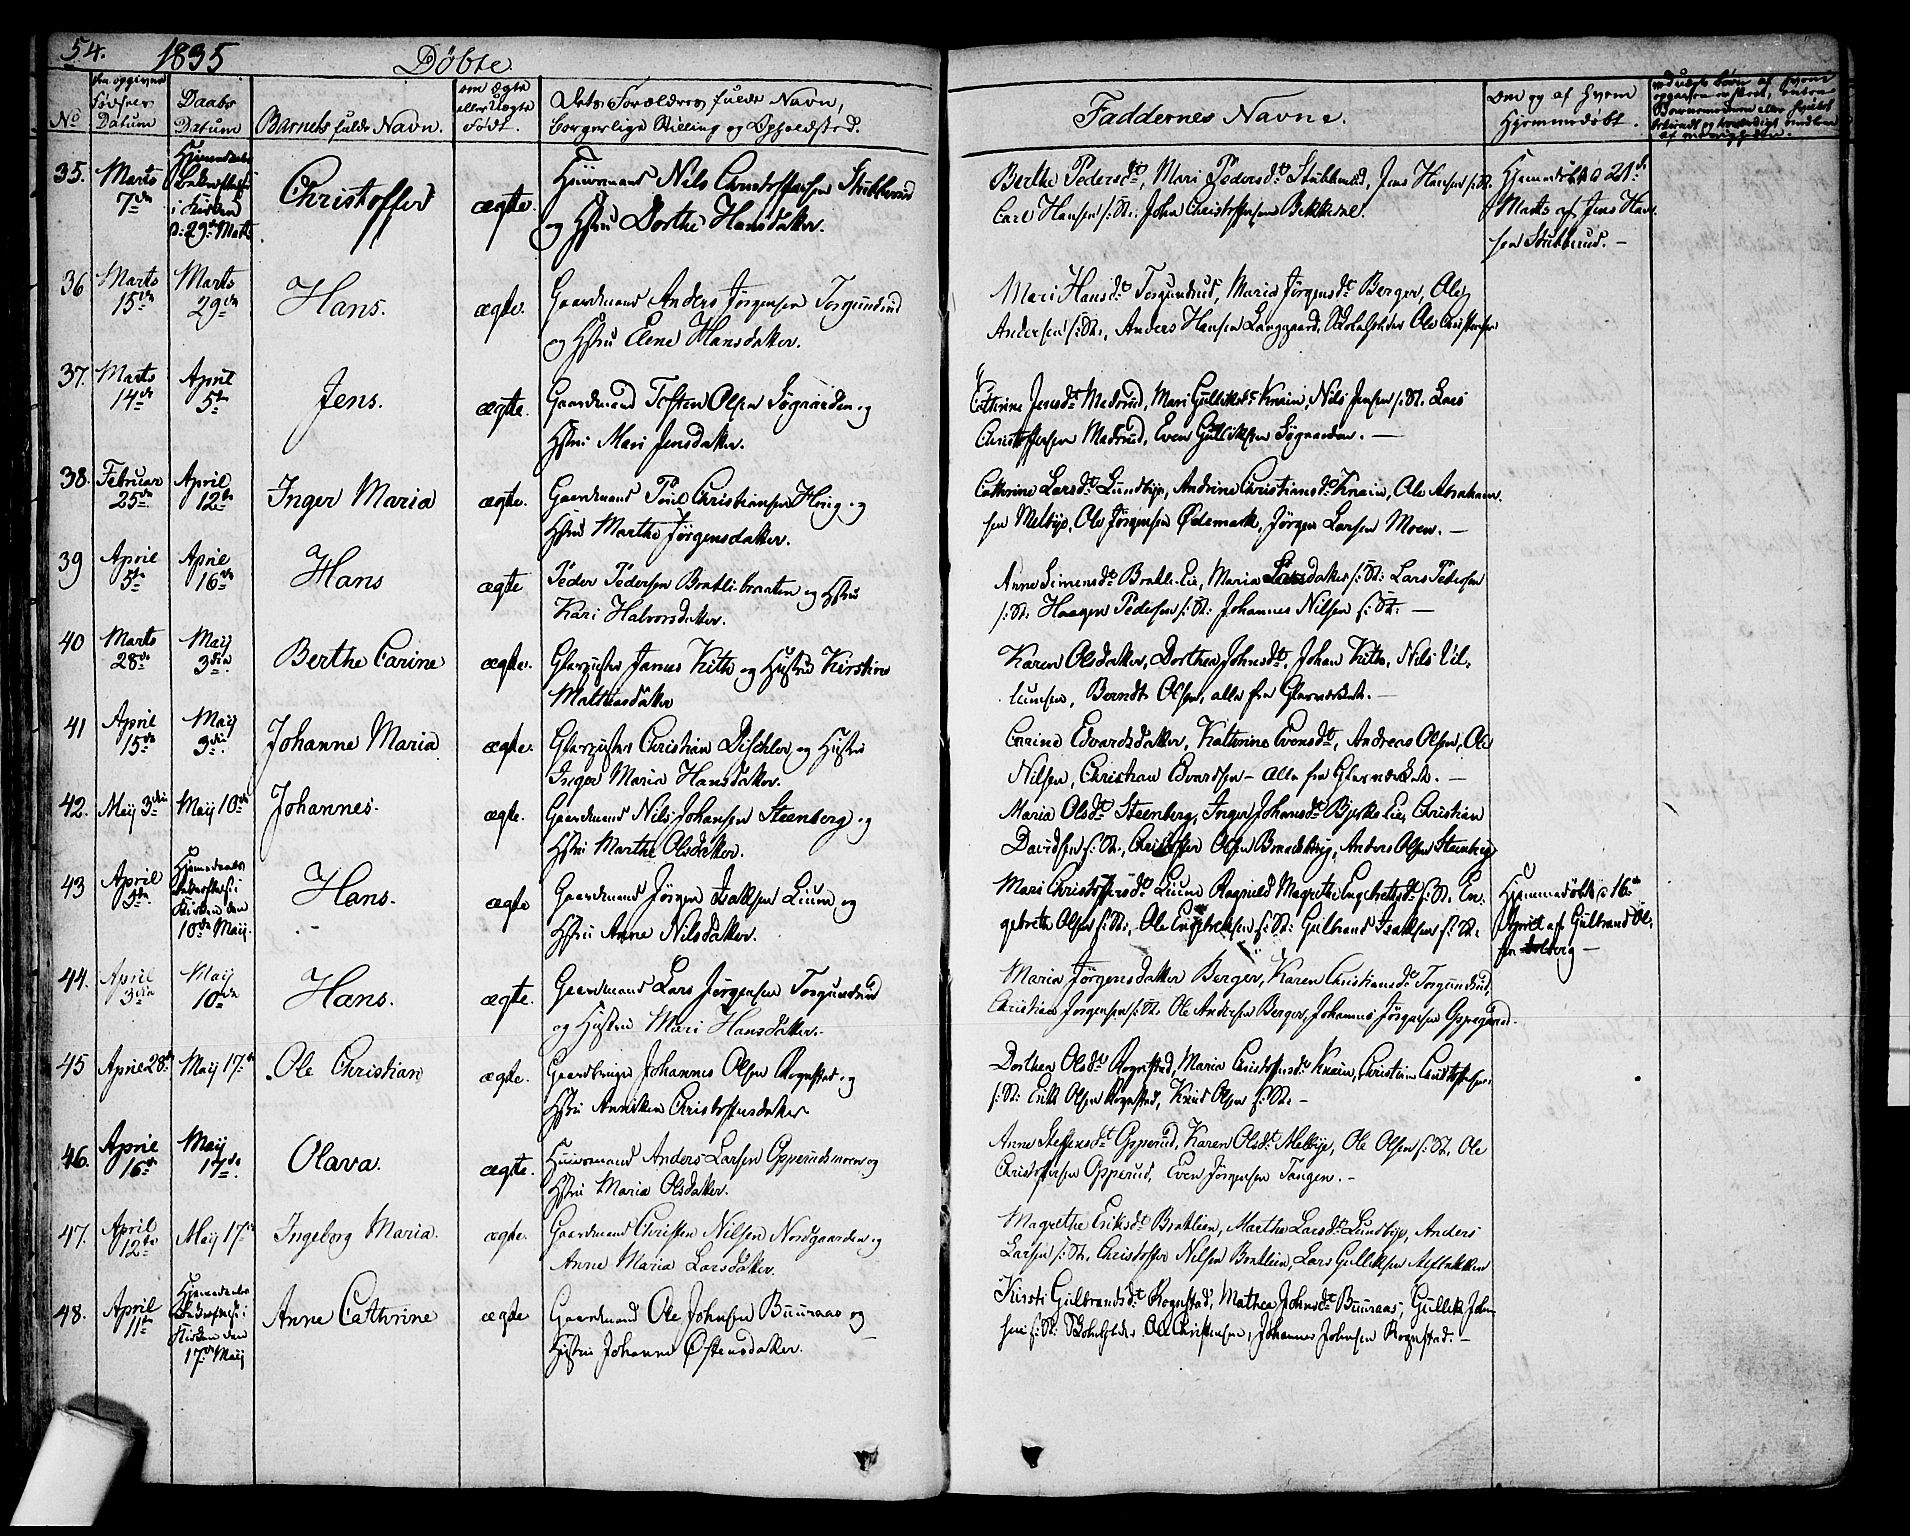 54. 1835 Døbte
No
Den opgivne Fødsels Datum
Daabs Datum
Barnets fulde Navn.
om ægte eller Uægte Født.
Dets Forældres fulde Navn, borgerlige Stilling og Opholdsted.
Faddernes Navne.
Om og af hvem Hjemmedøbt.
35. Marts 7de i Kirken d: 29de Marts Christoffer ægte. Huusmand Nils Christoffersen Stubberud
og Hstru Dorthe Hansdatter.
Berthe Pedersdt, Mari Pedersdt Stubberud, Jens Hansen s: St.
Carl Hansen s: St: John Christoffersen Bekkevel.
Hjemmedøbt d 21de
Marts af Jens Han-
sen Stubberud. –
36 Marts 15de Marts 29de Hans. ægte. Gaardmand Anders Jørgensen Torgundrud
og Hstru Elene Hansdatter.
Mari Hansdt Torgundrud, Maria Jørgensdt Berger, Ole
Andersen s: St:, Anders Hansen Langgaard, Skoleholder Ole Christensen
37. Marts 14de April 5te Jens. ægte. Gaardmand Tosten Olsen Søgaarden og
Hstru Mari Jensdatter.
Cathrine Jensdt Madsrud, Mari Gulliksdt Knain, Nils Jensen s: St. Lars
Christoffersen Madsrud, Even Gulliksen Søgaarden. –
38. Februar 25de April 12te Inger Maria ægte. Gaardmand Poul Christiansen Hvig og
Hstru Marthe Jørgensdatter.
Cathrine Larsdt Lundbye, Andrine Christiansdt Knain, Ole Abraham-
sen Melbye, Ole Jørgensen Ødemark, Jørgen Larsen Moen. –
39 April 5te April 16de Hans ægte Peder Pedersen Bratli-braaten og Hstru
Kari Halvorsdatter.
Anne Simensdt Bratli-Eie, Maria Larsdatter s: St: Lars Pedersen
s: St: Haagen Pedersen s: St: Johannes Nilsen s: St: –
40 Marts 28de Maij 3die Berthe Carine ægte. Glarpuster James Kith og Hustru Kirstine
Mathiasdatter
Karen Olsdatter, Dorthea Johnsdt, Johan Kith, Nils Vil-
lumsen, Berndt Olsen, alle fra Glasværket. –
41 April 15de Maij 3die Johanne Maria ægte. Glarpuster Christian Dischler og Hustru
Inger Maria Hansdatter.
Carine Edvardsdatter, Kathrine Evensdt, Andreas Olsen, Ole
Nilsen, Christian Edvardsen – alle fra Glasværket. –
42. Maij 3die Maij 10de Johannes. ægte. Gaardmand Nils Johansen Steenberg og
Hstru Marthe Olsdatter.
Maria Olsdt Steenberg, Inger Johannsdt Bjerke Eie, Christian
Davidsen s: St:, Christoffer Olsen Brandsberg, Anders Olsen Steenberg
43 April 3die Kirken den 10de Maij. Hans. ægte Gaardmand Jørgen Isaksen Lium og
Hstru Anne Nilsdatter.
Mari Christoffersdt Lium Ragnild Magrethe Engebretsdt s: St. En-
gebrette Olsen s: St:, Ole Engebretsen s: St: Gulbrand Isaksen s: St.
Hjemmedøbt d 16de
April af Gulbrand Ol-
sen
44. April 3die Maij 10de Hans. ægte. Gaardmand Lars Jørgensen Torgundrud
og Hustru Mari Hansdatter.-
Maria Jørgensdatter Berger, Karen Christiansdt Torgundrud,
Christian Jørgensen s: St. Ole Andersen Berger, Johannes Jørgensen Oppegaard.
45 April 28de Maij 17de Ole Christian ægte. Gaardbruger Johannes Olsen Rognstad og
Hstru Anniken Christoffersdatter.
Dorthea Olsdt Rognstad, Maria Christoffersdt Knain, Christian Christoffersen
s: St: Erik Olsen Rognstad, Knud Olsen s: St: –
46. April 16de Maij 17de Olava. ægte. Huusmand Anders Larsen Opperudsmoen og
Hstru Maria Olsdatter.
Anne Steffensdt Opperud, Karen Olsdt Melbye, Ole Olsen s: St. Ole
Christoffersen Opperud, Even Jørgensen Tangen. –
47. April 12te Maij 17de Ingeborg Maria. ægte. Gaardmand Christen Nilsen Nordgaarden og
Anne Maria Larsdatter.
Magrethe Eriksdt Bratlien, Marthe Larsdt Lundbye, Anders
Larsen s: St. Christoffer Nilsen Bratlien, Lars Gulliksen
48. April 11te Kirken den 17de Maij Anne Cathrine ægte Gaardmand Ole Johnsen Buuraas og
Hstru Johanne Østensdatter.
Kirsti Gulbrandsdt Rognstad, Mathea Johnsdt Buuraas, Gullik John-
sen s: St: Skoleholder Ole Christensen, Johannes Johnsen Rognstad. –